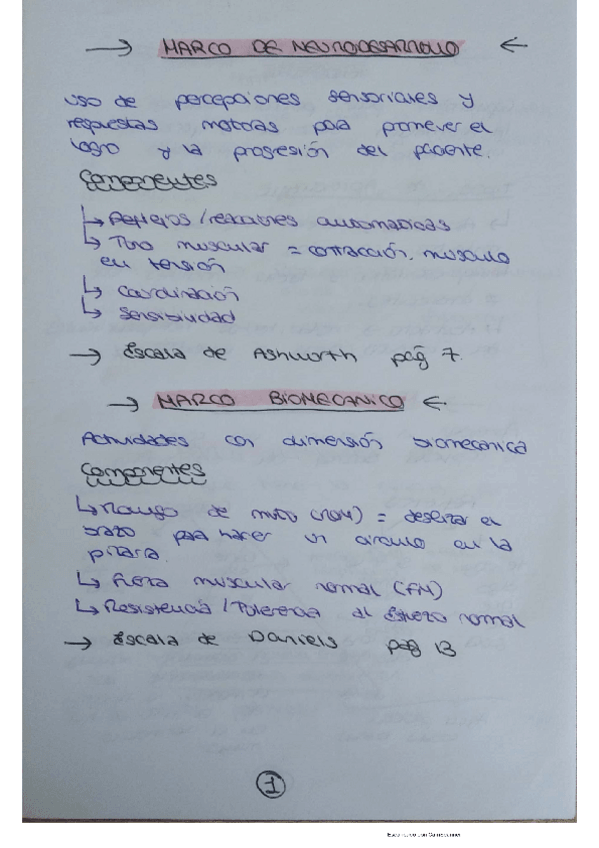 → MARCO DE NEURODESARROLLO ←
uso de percepciones sensoriales y
respuestas motoras para promever el
logro y la progresión del paciente.
Componentes
↳ Reflejos / reacciones automáticas
↳ Tono muscular = contracción. musculo
en tensión
↳ Coordinación
↳ Sensibilidad
→ Escala de Ashworth pág 7.
→ MARCO BIOMECANICO ←
Actividades con dimensión biomecanica
Componentes
↳ Rango de mvto (ROM) = deslizar el
brazo para hacer un circulo en la
pizarra.
↳ Fuerza muscular normal (FM)
↳ Resistencia / Tolerencia al esfuerzo normal
→ Escala de Daniels pág 13
1
Escaneado con CamScanner